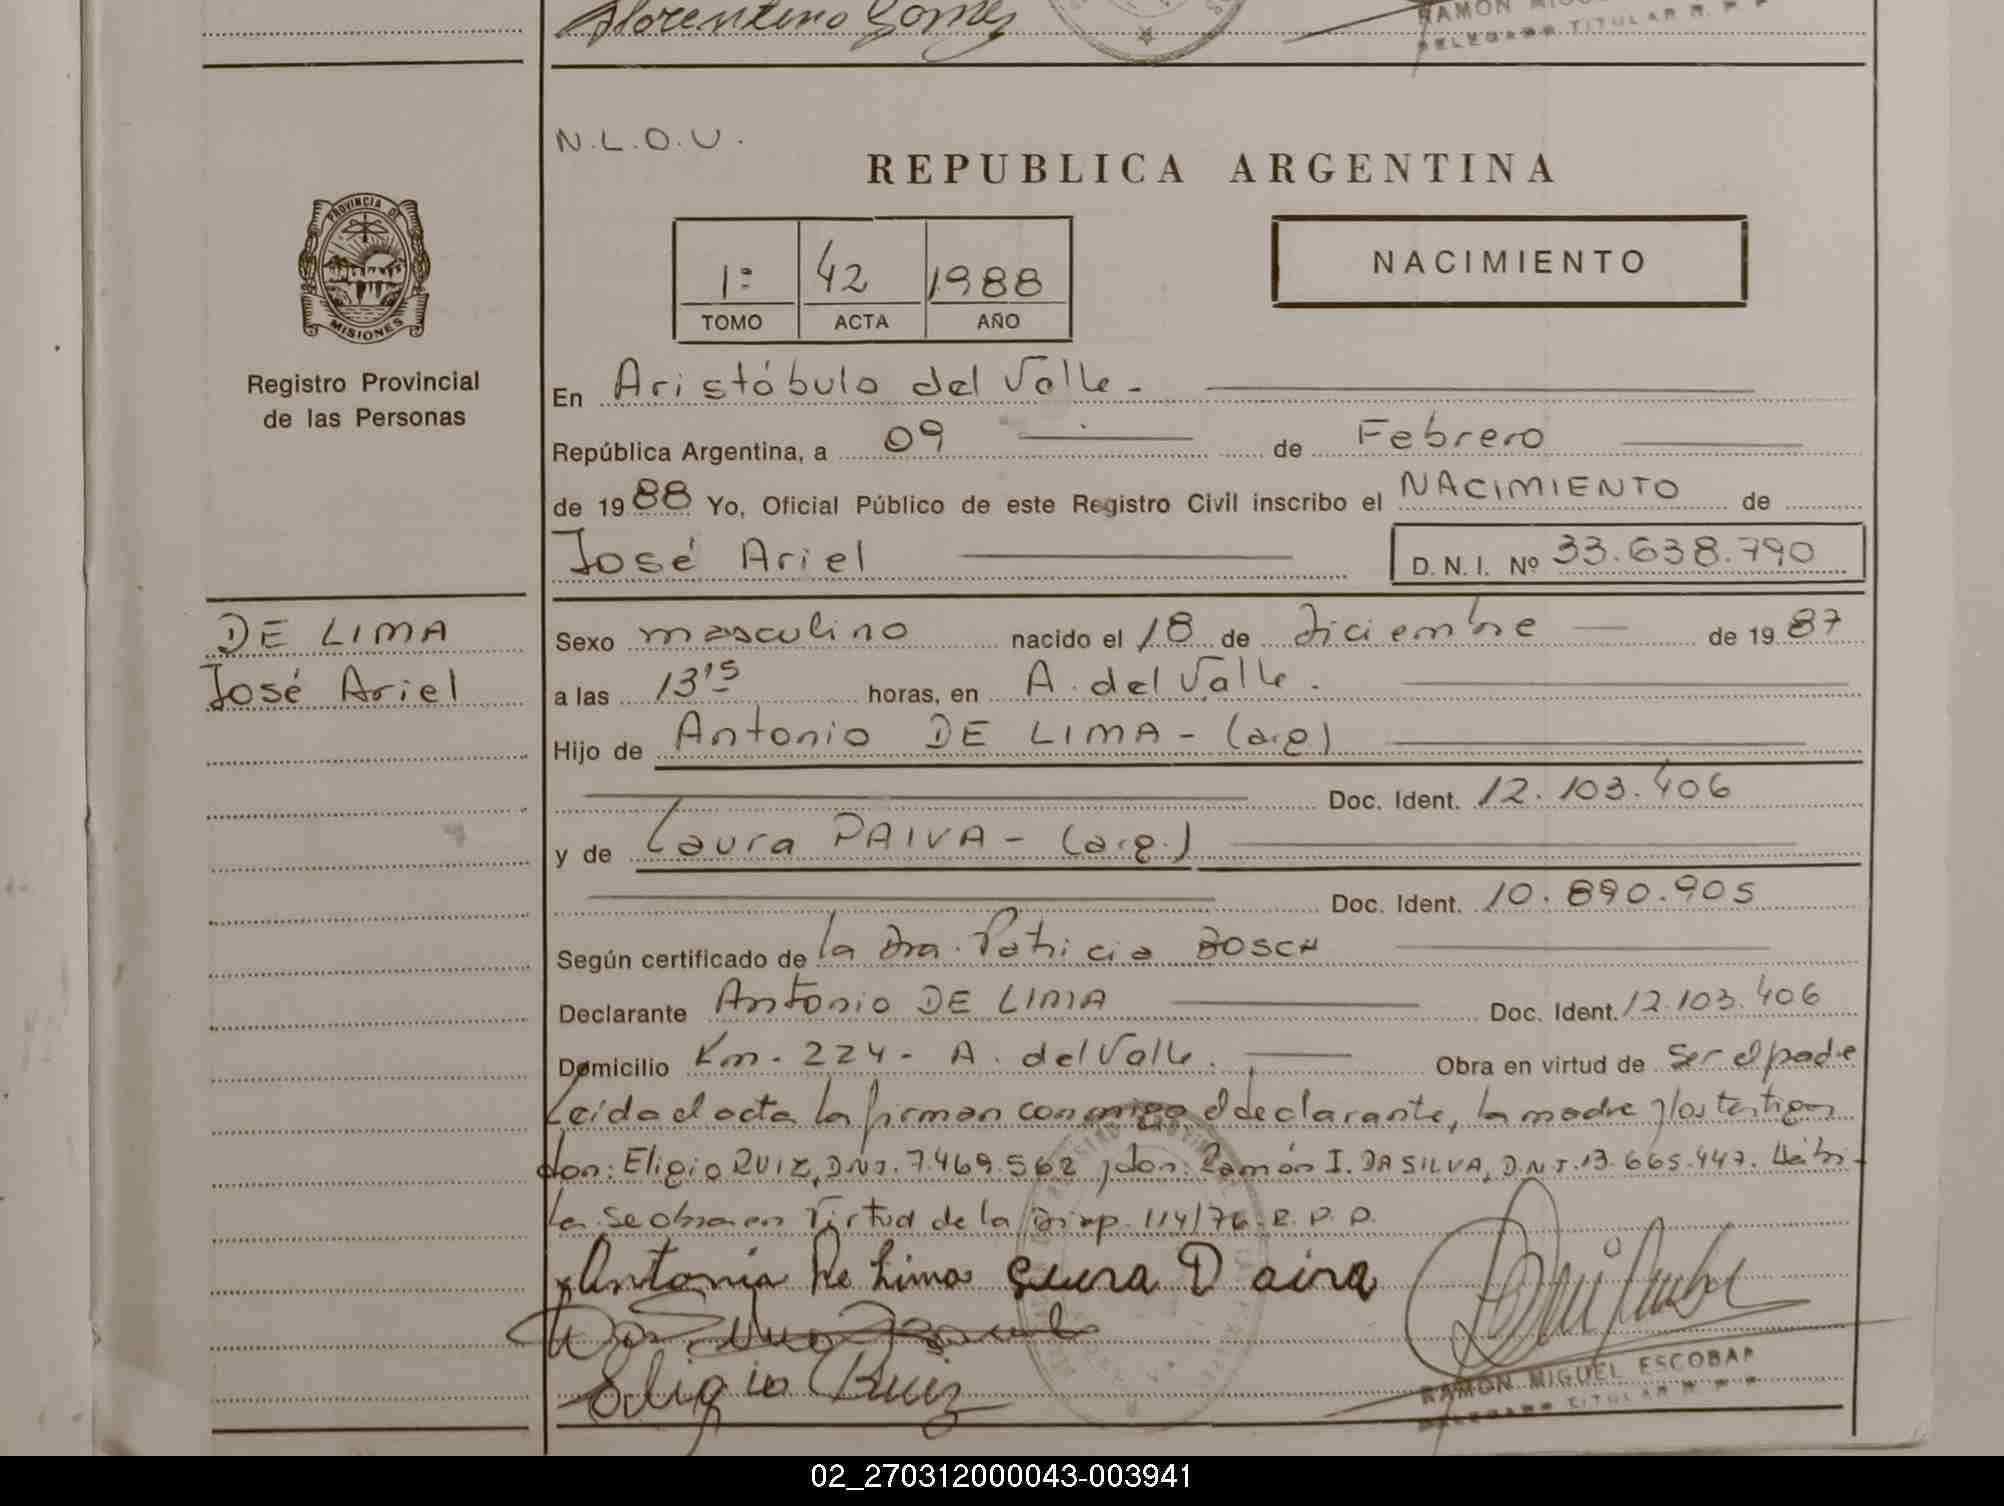 Florentino Gomez
RAMON
DELEGADO TITULAR R. P. P.
N.L.O.U.
REPUBLICA ARGENTINA
PROVINCIA DE
MISIONES
1º 42 1988
TOMO ACTA AÑO
NACIMIENTO
Registro Provincial
de las Personas
En Aristóbulo del Valle -
República Argentina, a 09 de Febrero
de 1988 Yo, Oficial Público de este Registro Civil inscribo el NACIMIENTO de
José Ariel
D. N. I. Nº 33.638.790
DE LIMA
José Ariel
Sexo masculino nacido el 18 de Diciembre de 1987
a las 13'15 horas, en A. del Valle.
Hijo de Antonio DE LIMA - (arg)
Doc. Ident. 12.103.406
y de Laura PAIVA - (arg.)
Doc. Ident. 10.890.905
Según certificado de la Dra. Patricia BOSCH
Declarante Antonio DE LIMA Doc. Ident. 12.103.406
Domicilio Km. 224 - A. del Valle. Obra en virtud de ser el padre
Leída el acta la firman conmigo el declarante, la madre y los testigos
don: Eligio RUIZ, D.N.I. 7.469.562 y don: Ramón I. DA SILVA, D.N.I. 13.665.447. Hábi-
les. Se obra en virtud de la Disp. 114/76. R. P. P.
Antonio De Lima
Eligio Ruiz
RAMON MIGUEL ESCOBAR
DELEGADO TITULAR R. P. P.
02_270312000043-003941